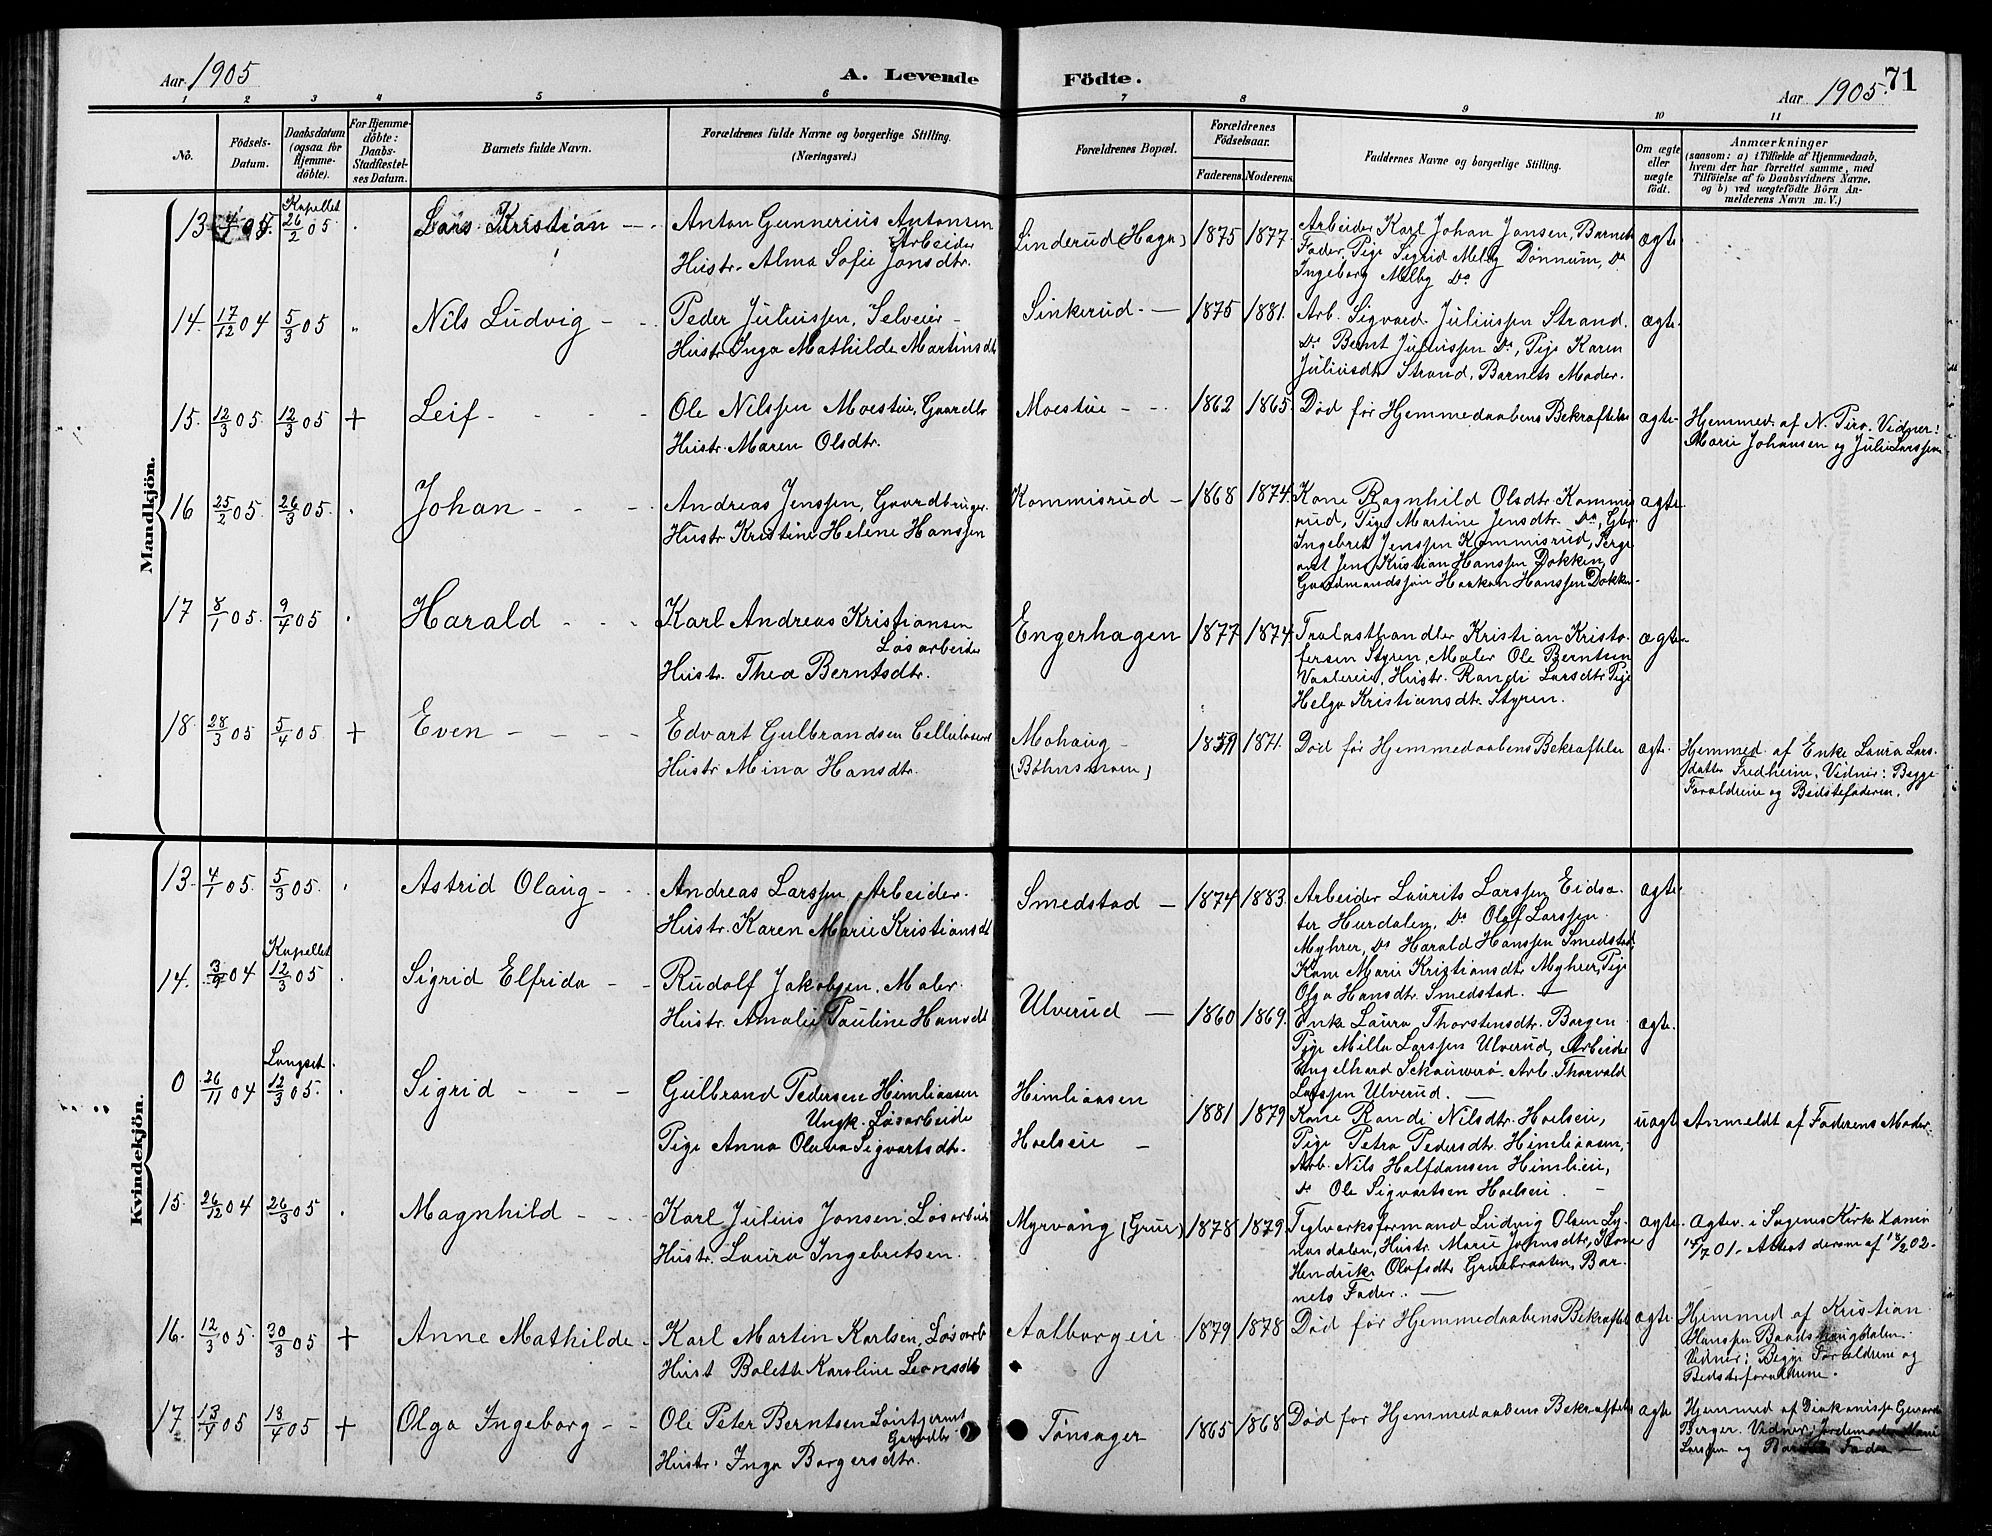 Aar 1905
A. Levende Födte.
71
Aar 1905.
1 2 3 4 5 6 7 8 9 10 11
No.
Födsels-
Datum.
Daabsdatum
(ogsaa for
Hjemme-
döbte).
For Hjemme-
döbte:
Daabs-
Stadfæstel-
ses Datum.
Barnets fulde Navn.
Forældrenes fulde Navne og borgerlige Stilling.
(Næringsvei.)
Forældrenes Bopæl.
Forældrenes
Födselsaar.
Faderens. Moderens.
Faddernes Navne og borgerlige Stilling.
Om ægte
eller
uægte
født.
Anmærkninger
(saasom: a) i Tilfælde af Hjemmedaab,
hvem der har forrettet samme, med
Tilföielse af to Daabsvidners Navne.
og b) ved uægtefödte Börn An-
melderens Navn m. V.)
Mandkjön.
13
Kapellet
26/2 05
Lars Kristian
Anton Gunnerius Antonsen
Arbeider
Hustr. Alma Sofie Jonsdtr.
Linderud (Hagn)
1875 1877
Arbeider Karl Johan Jansen, Barnets
Fader, Pige Sigrid Melby Dønnum, Do
Ingeborg Melby Do
ægte
14. 17/12 04 5/3 05
Nils Ludvig
Peder Juliussen, Selveier
Hustr. Inga Mathilde Martinsdt
Sinkerud.
1875 1881.
Arb. Sigvard Juliussen Strand.
Do Bernt Juliussen Do, Pige Karen
Juliusdtr. Strand, Barnets Moder.
ægte
15. 12/3 05. 12/3 05 +
Leif
Ole Nilssen Moestue, Gaardbr
Hustr. Maren Olsdtr.
Moestue
1862 1865
Død før Hjemmedaabens Bekræftelse
ægte
Hjemmed. af N. Piro. Vidner:
Marie Johansen og Julie Larssen
16 25/2 05. 26/3 05.
Johan
Andreas Jenssen, Gaardbruger
Hustr. Kristine Helene Hanssen
Kommisrud
1868 1874
Kone Ragnhild Olsdtr. Kommis
rud, Pige Martine Jensdtr. Do, Gbr.
Ingebret Jenssen Kommisrud, Serge
ant Jens Kristian Hanssen Dokken,
Gaardmandssøn Haakon Hanssen Dokken
ægte
17 8/1 05. 9/4 05
Harald
Karl Andreas Kristiansen
Løsarbeider
Hustr. Thea Berntsdtr.
Engerhagen
1877 1874
Trælasthandler Kristian Kristo-
fersen Styren, Maler Ole Berntsen
Vaalereie, Hustr. Randi Larsdtr. Pige
Helga Kristiansdtr. Styren.
ægte
18. 28/3 05 5/4 05. +
Even
Edvart Gulbrandsen
Hustr. Mina Hansdtr.
Mohaug
(Bøhnsmoen)
1859 1871.
Død før Hjemmedaabens Bekræftelse
ægte
Hjemmed. af Enke Laura Lars-
datter Fredheim. Vidner: Begge
Forældrene og Bedstefaderen.
Kvindekjön.
13. 4/1 05. 5/3 05.
Astrid Olaug
Andreas Larssen Arbeider.
Hustr. Karen Marie Kristiansdt
Smedstad
1874 1883.
Arbeider Laurits Larssen Eidsæ-
ter Hurdalen, Do Olaf Larssen
Myhrer, Do Harald Hanssen Smedstad
Kone Marie Kristiansdtr. Myhrer, Pige
Olga Hansdtr. Smedstad.
ægte
14.
Kapellet
12/3 05
Sigrid Elfrida
Rudolf Jakobsen. Maler
Hustr. Amalie Pauline Hansdt
Ulverud
1860 1869.
Enke Laura Thorstensdtr. Borgen
Pige Milla Larssen Ulverud, Arbeider
Engelhard Arb. Thorvald
Larssen Ulverud.
ægte
0 26/11 04
Langset
12/3 05.
Sigrid
Gulbrand Pedersen Himliaasen
Ungk. Løsarbeide
Pige Anna Olava Sigvartsdtr.
Himliaasen
Hoelseie
1881 1879
Kone Randi Nilsdtr. Hoelseie,
Pige Petra Pedersdtr. Himliaasen,
Arb. Nils Halfdansen Himlieie,
Do Ole Sigvartsen Hoelseie.
uægt
Anmeldt af Faderens Moder
15. 26/12 04 26/3 05
Magnhild
Karl Julius Jansen. Løsarbeid
Hustr. Laura Ingebretsen.
Myrvang (Grue)
1878 1879
Teglverksformand Ludvig Olsen Ly-
nasdalen, Hustr. Marie Johnsdtr, Kone
Hendrike Olafsdtr. Gruebraaten, Bar-
nets Fader.
ægte
Ægtev. i Sagenes Kirke Xania
14/7 01. Attest derom af 18/2 02.
16. 12/3 05. 30/3 05 +
Anne Mathilde
Karl Martin Karlsen, Løsarb
Hust Bolette Karoline Leonsdt
Aalborgeie
1879 1878
Død før Hjemmedaabens Bekræftelse
ægte
Hjemmed af Kristian
Hanssen Baadshaugdalen.
Vidner: Begge Forældrene og
Bedsteforældrene.
17. 13/4 05 13/4 05 +
Olga Ingeborg
Ole Peter Berntsen
Gaardbr
Hustr. Inga Borgersdtr.
Tønsager
1865 1868
Død før Hjemmedaabens Bekræftelse
ægte
Hjemmed af Diakonisse
Berger. Vidner: Jordemoder
Larssen og Fader